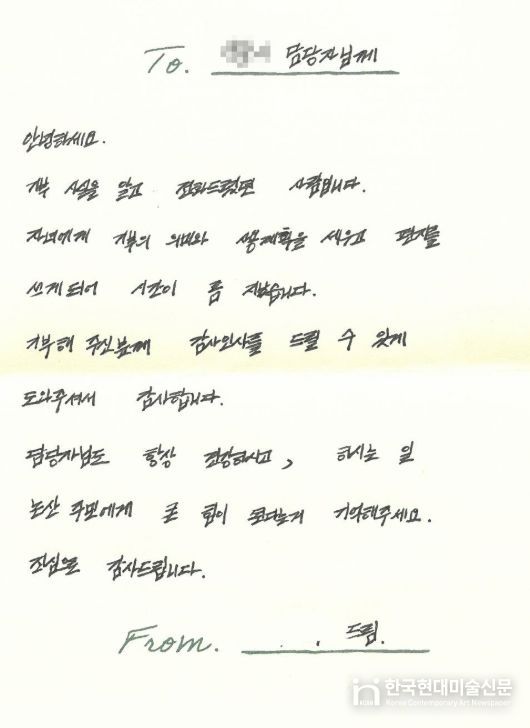 To. 담당자님께
안녕하세요.
기부 사실을 알고 전화드렸던 사람입니다.
자녀에게 기부의 의미와 사용계획을 세우고 편지를
쓰게되어 시간이 좀 지났습니다.
기부해 주신분께 감사인사를 드릴 수 있게
도와주셔서 감사합니다.
담당자님도 항상 건강하시고, 하시는 일
논산 주민에게 큰 힘이 된다는거 기억해주세요.
진심으로 감사드립니다.
From. 드림.
한국현대미술신문
Korea Contemporary Art Newspaper